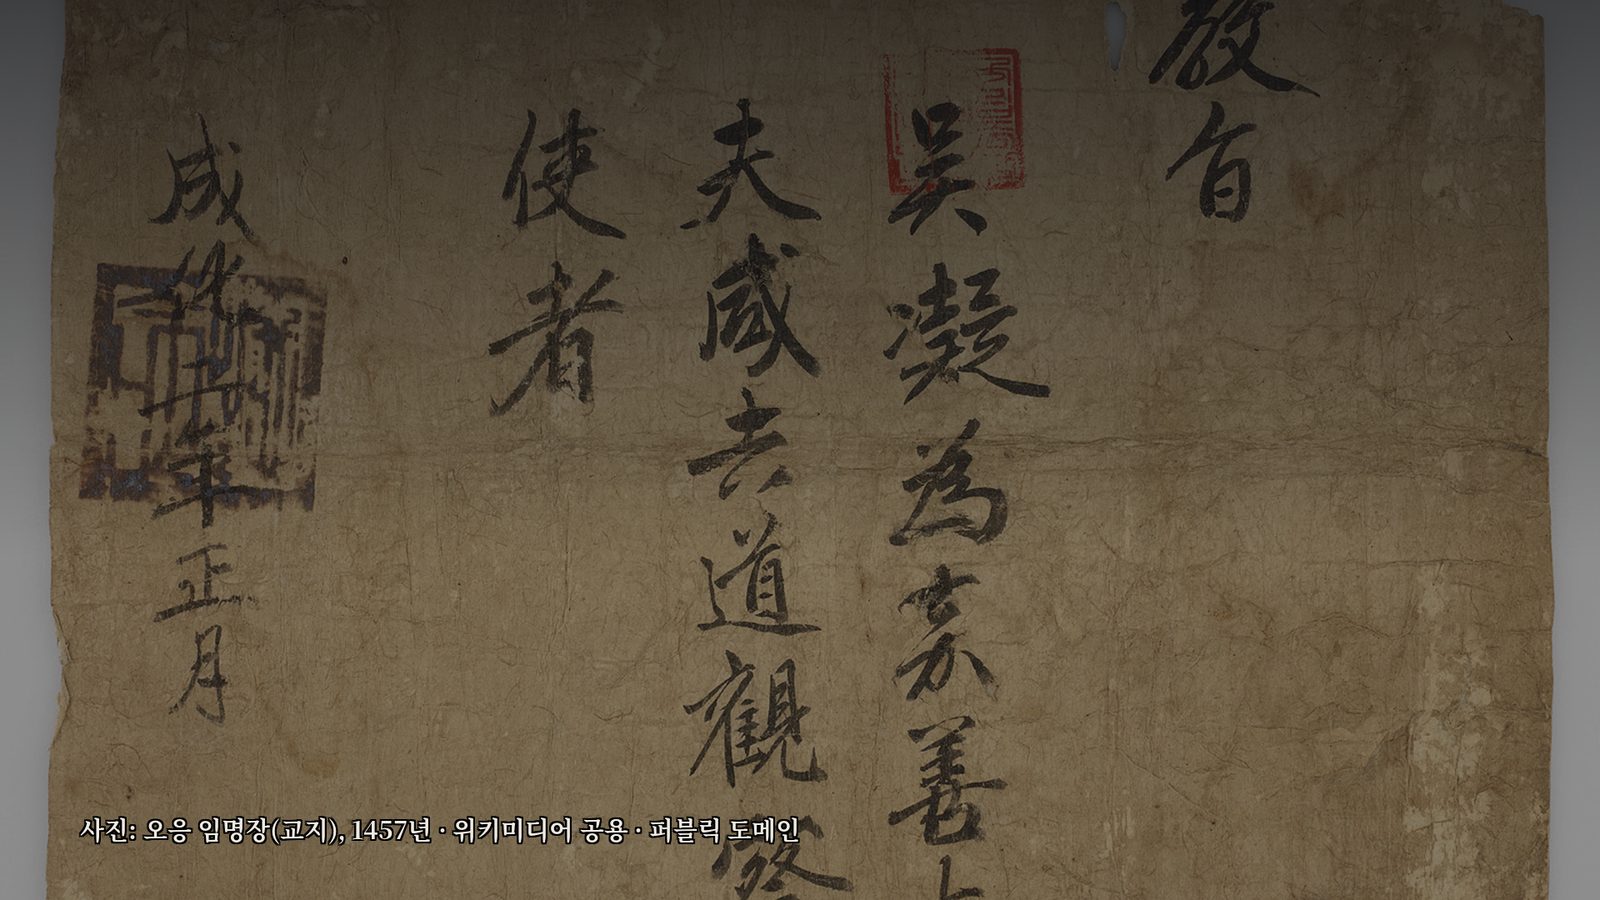 教旨
吳凝為嘉善大
夫咸吉道觀察
使者
成化三年正月
사진: 오응 임명장(교지), 1457년 · 위키미디어 공용 · 퍼블릭 도메인